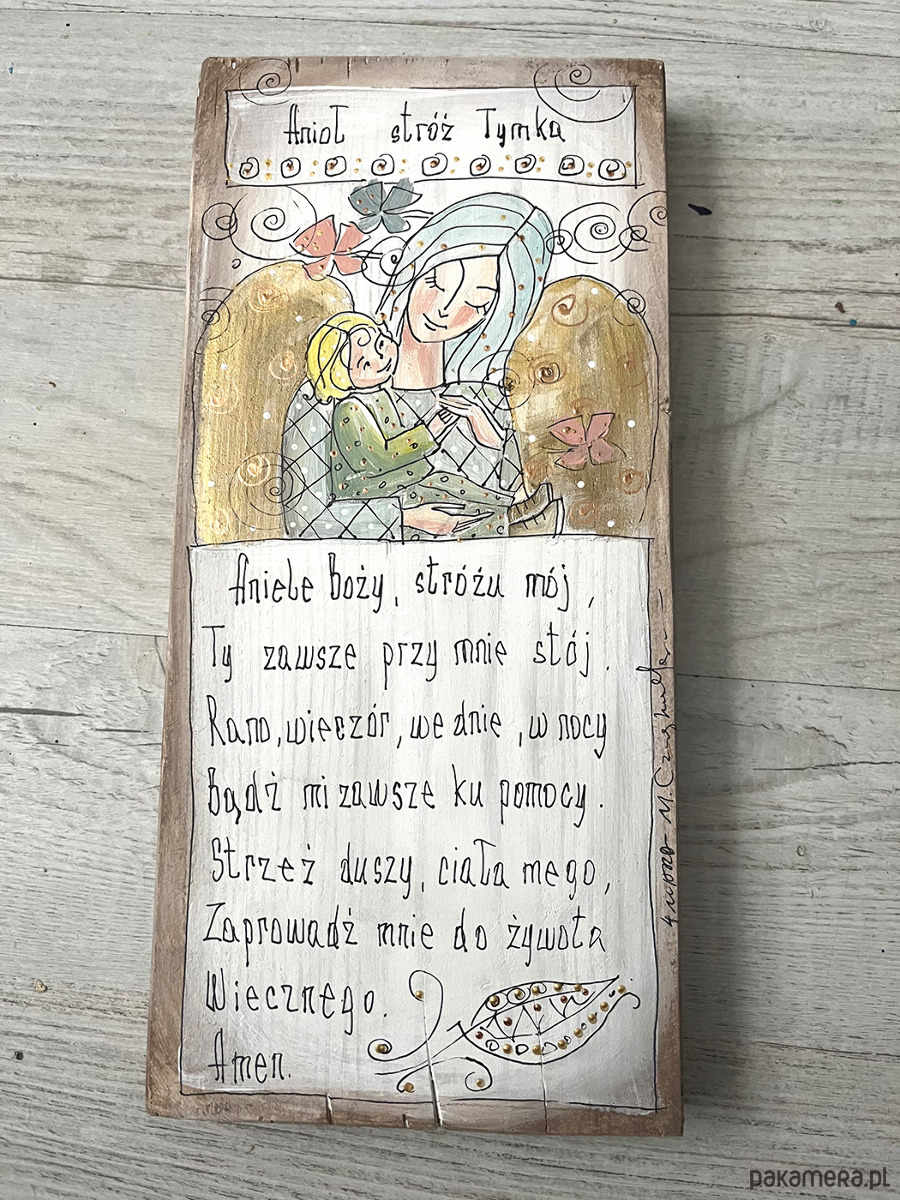 Anioł stróż Tymka
Aniele Boży, stróżu mój,
Ty zawsze przy mnie stój.
Rano, wieczór, we dnie, w nocy
Bądź mi zawsze ku pomocy.
Strzeż duszy, ciała mego,
Zaprowadź mnie do żywota
Wiecznego.
Amen.
pakamera.pl